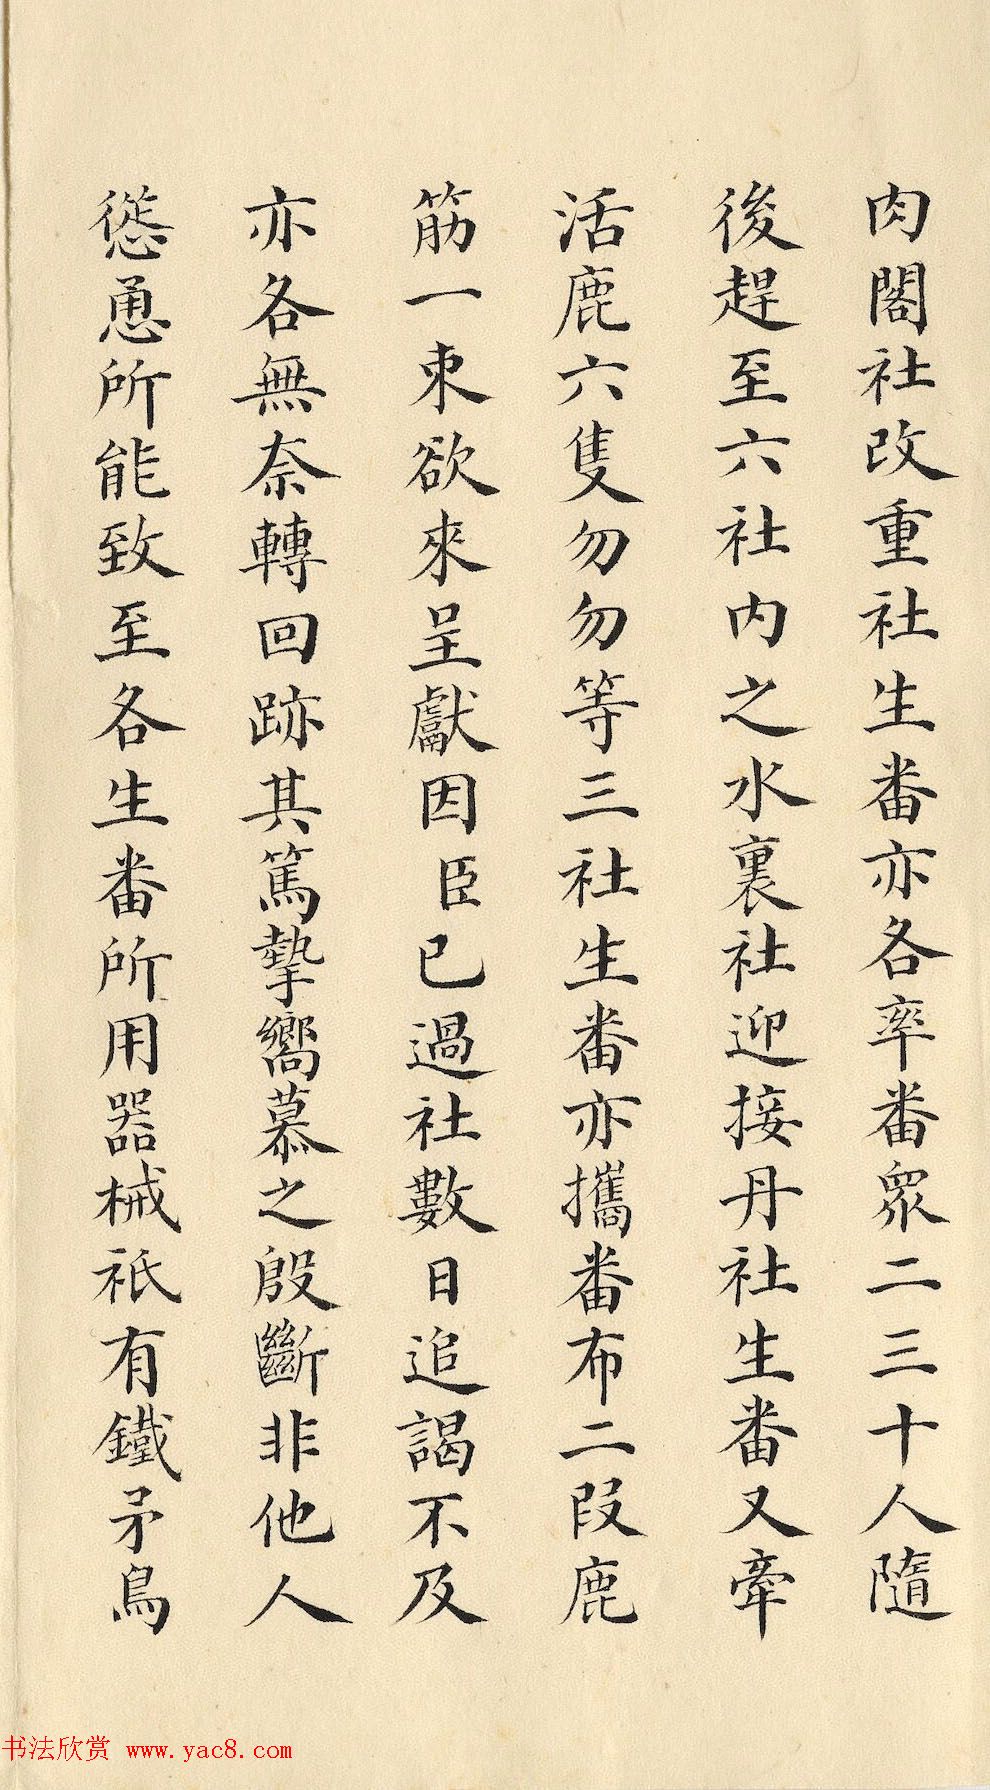 肉閣社改重社生番亦各率番眾二三十人隨
後趕至六社內之水裏社迎接丹社生番又牽
活鹿六隻勿勿等三社生番亦攜番布二段鹿
筋一束欲來呈獻因臣已過社數日追謁不及
亦各無奈轉回跡其篤摯嚮慕之殷斷非他人
慫恿所能致至各生番所用器械祇有鐵矛鳥
书法欣赏 www.yac8.com